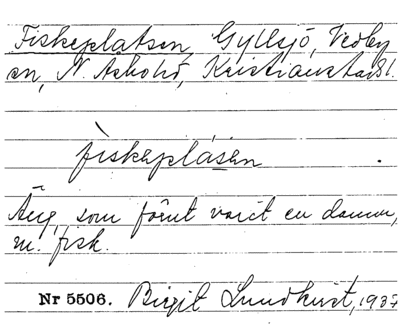 Fiskeplatsen, Gyllsjö, Vedby
sn, N. Åsbohd, Kristianstads l.
fìskeplásen
Äng, som förut varit en damm,
m. fisk.
Nr 5506. Birgit Lundkvist, 1937